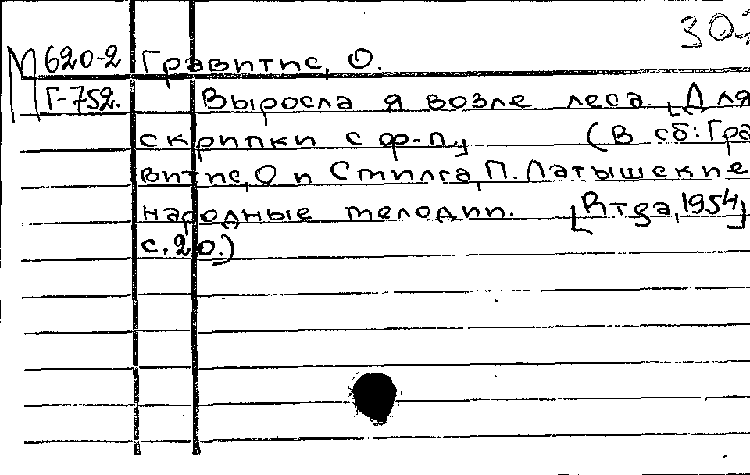 30
М 620-2 Гравитис, О.
Г-752. Выросла я возле леса. [Для
скрипки с ф-п.] (В сб: Гра
витис, О и Стилга, П. Латышские
народные мелодии. [Rīga, 1954]
с. 20.)